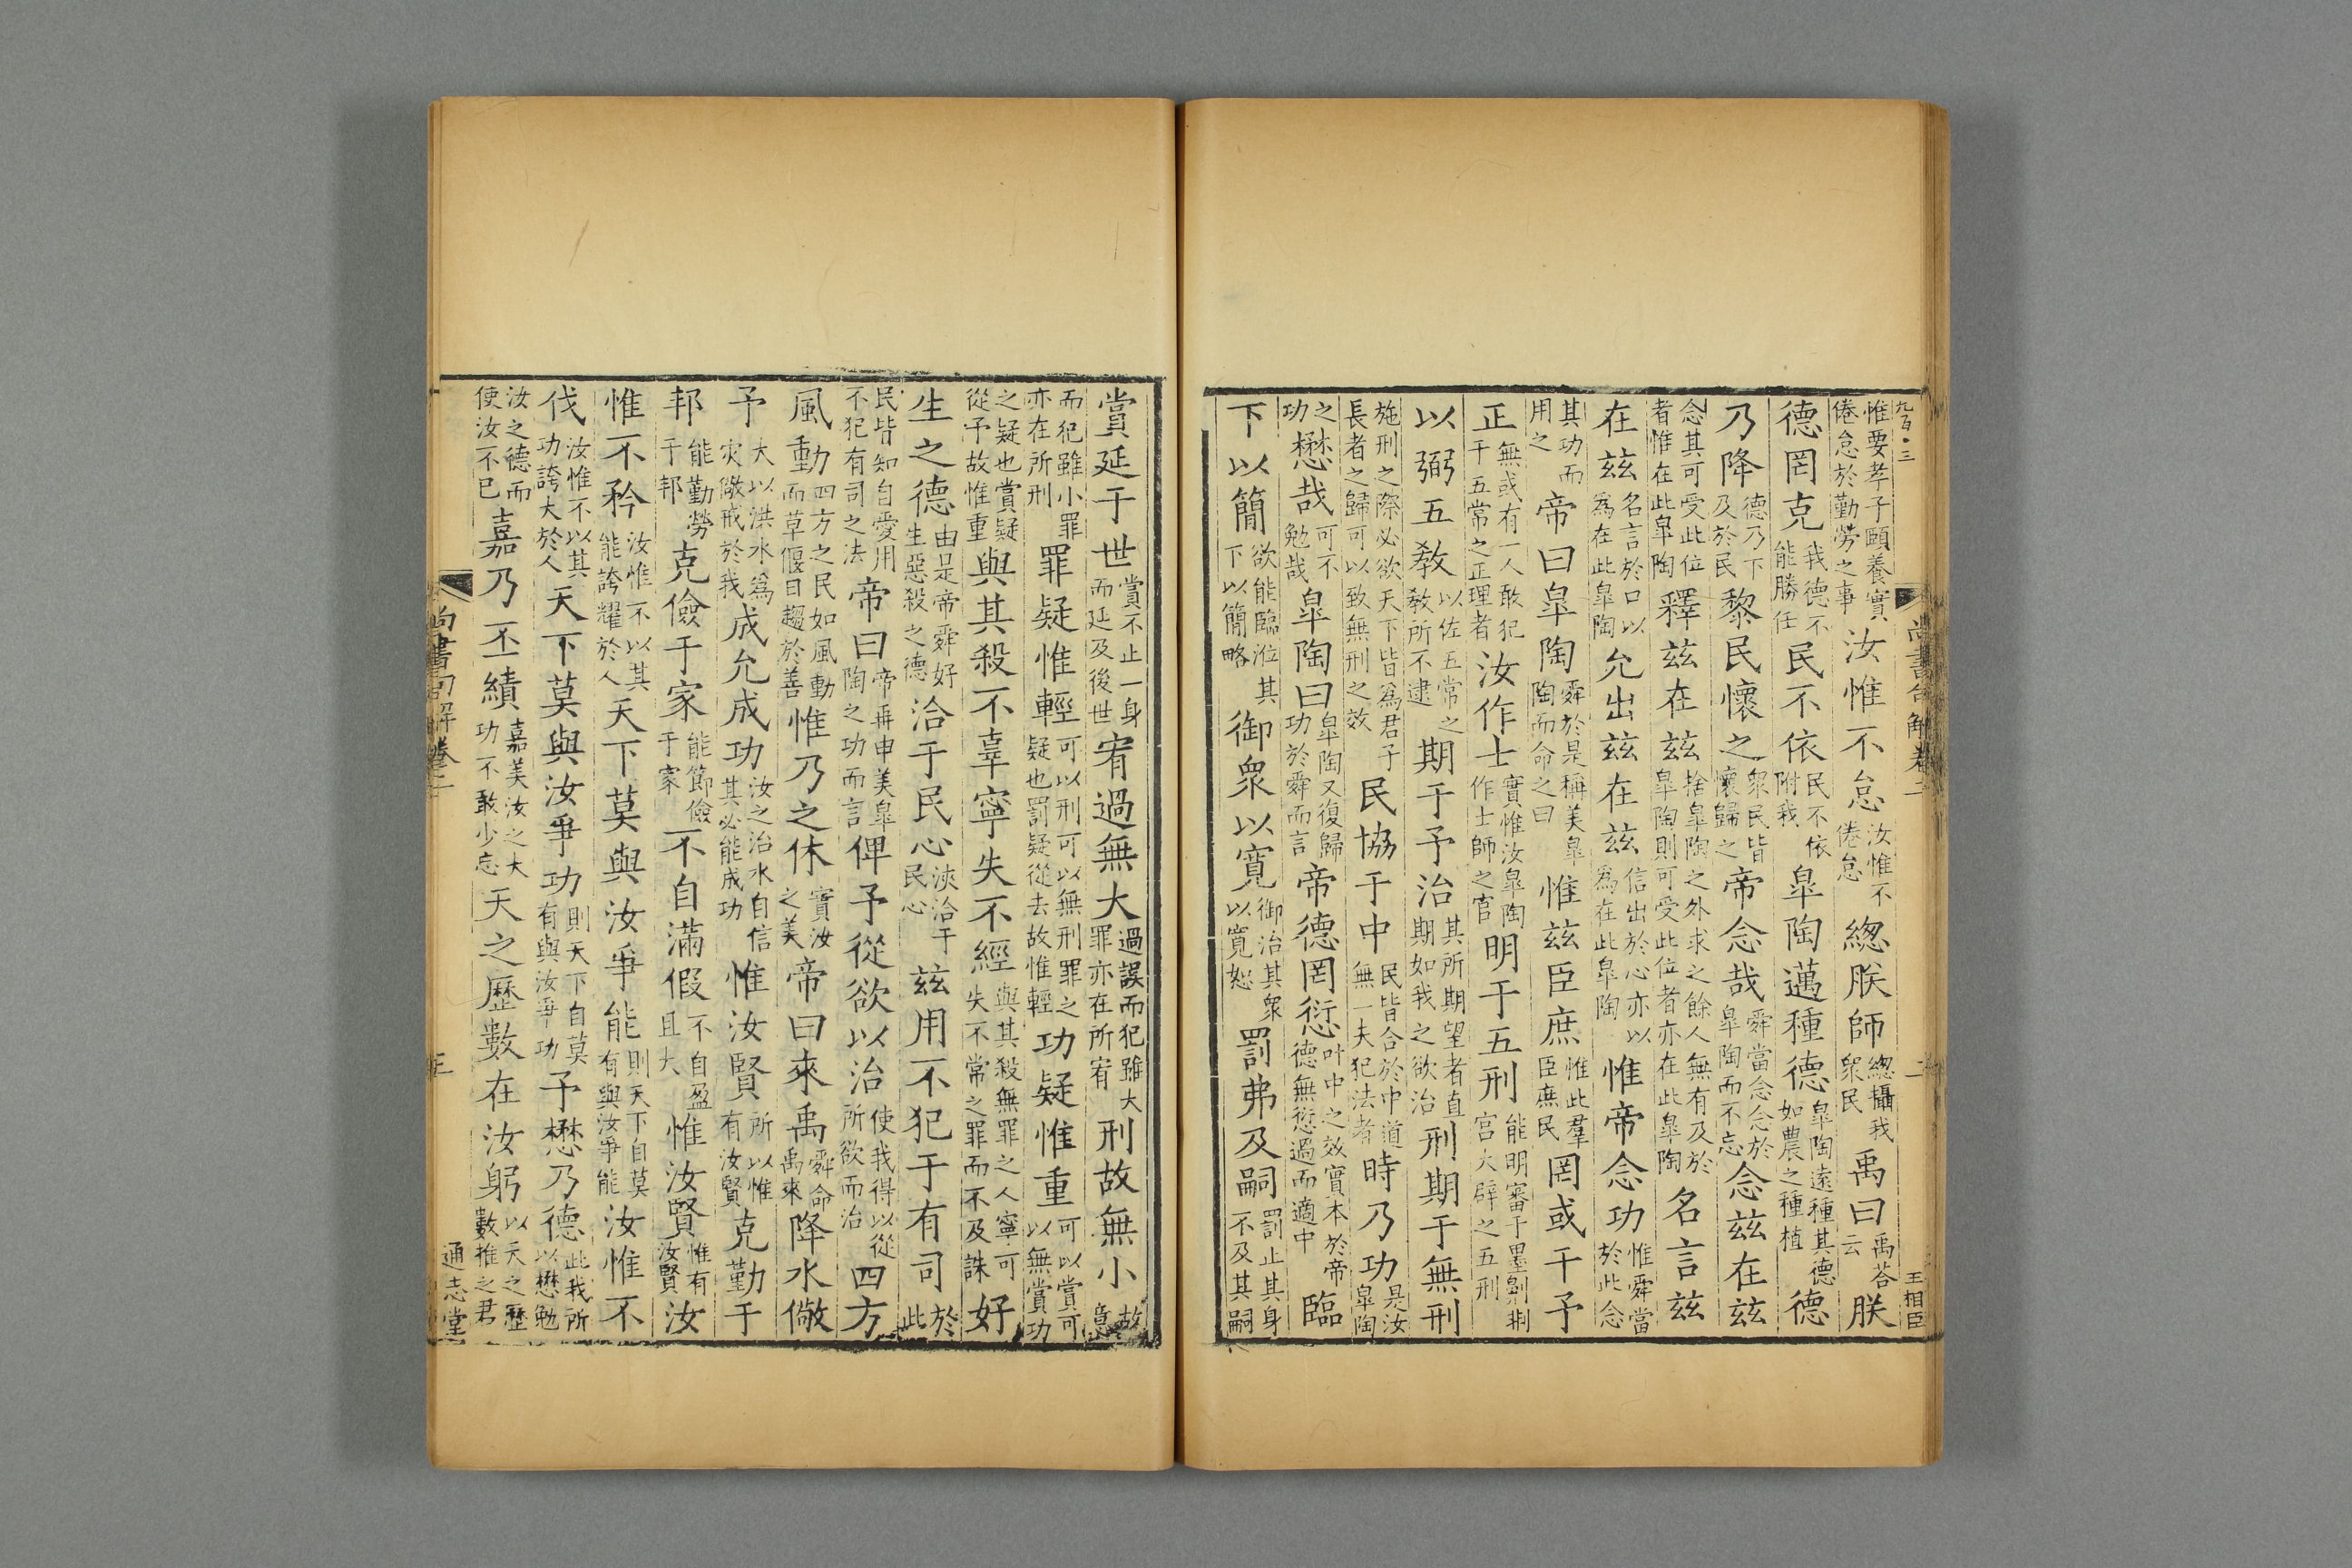 九百·三
尚書句解卷二
二
王相臣
惟要孝子頤養實倦怠於勤勞之事汝惟不怠汝惟不倦怠緫朕師緫攝我衆民禹曰禹荅云朕
德罔克我德不能勝任民不依民不依附我皐陶邁種德皐陶遠種其德如農之種植德
乃降德乃下及於民黎民懷之衆民皆懷歸之帝念哉舜當念念於皐陶而不忘念兹在兹
念其可受此位者惟在此皐陶釋兹在兹捨皐陶之外求之餘人無有及於皐陶則可受此位者亦在此皐陶名言兹
在兹名言於口以為在此皐陶允出兹在兹信出於心亦以為在此皐陶惟帝念功惟舜當於此念
其功而用之帝曰皐陶舜於是稱美皐陶而命之曰惟兹臣庶惟此羣臣庶民罔或干予
正無或有一人敢犯干五常之正理者汝作士實惟汝皐陶作士師之官明于五刑能明審于墨劓剕宫大辟之五刑
以弼五教以佐五常之教所不逮期于予治其所期望者直期如我之欲治刑期于無刑
施刑之際必欲天下皆為君子長者之歸可以致無刑之效民協于中民皆合於中道無一夫犯法者時乃功是汝皐陶
之功懋哉可不勉哉皐陶曰皐陶又復歸功於舜而言帝德罔愆叶中之效實本於帝德無愆過而適中臨
下以簡欲能臨涖其下以簡略御衆以寛御治其衆以寛恕罰弗及嗣罰止其身不及其嗣
賞延于世賞不止一身而延及後世宥過無大過誤而犯雖大罪亦在所宥刑故無小故意
而犯雖小罪亦在所刑罪疑惟輕可以刑可以無刑罪之疑也罰疑從去故惟輕功疑惟重可以賞可以無賞功
之疑也賞疑從予故惟重與其殺不辜寧失不經與其殺無罪之人寧可失不常之罪而不及誅好
生之德由是帝舜好生惡殺之德洽于民心浹洽于民心兹用不犯于有司於此
民皆知自愛用不犯有司之法帝曰帝再申美皐陶之功而言俾予從欲以治使我得以從所欲而治四方
風動四方之民如風動而草偃日趨於善惟乃之休實汝之美帝曰來禹舜命禹來降水儆
予大以洪水為灾儆戒於我成允成功汝之治水自信其必能成功惟汝賢所以惟有汝賢克勤于
邦能勤勞于邦克儉于家能節儉于家不自滿假不自盈且大惟汝賢惟有汝賢汝
惟不矜汝惟不以其能誇耀於人天下莫與汝爭能則天下自莫有與汝爭能汝惟不
伐汝惟不以其功誇大於人天下莫與汝爭功則天下自莫有與汝爭功予懋乃德此我所以懋勉
汝之德而使汝不已嘉乃丕績嘉美汝之大功不敢少忘天之歷數在汝躬以天之歷數推之君
尚書句解卷二
三
通志堂